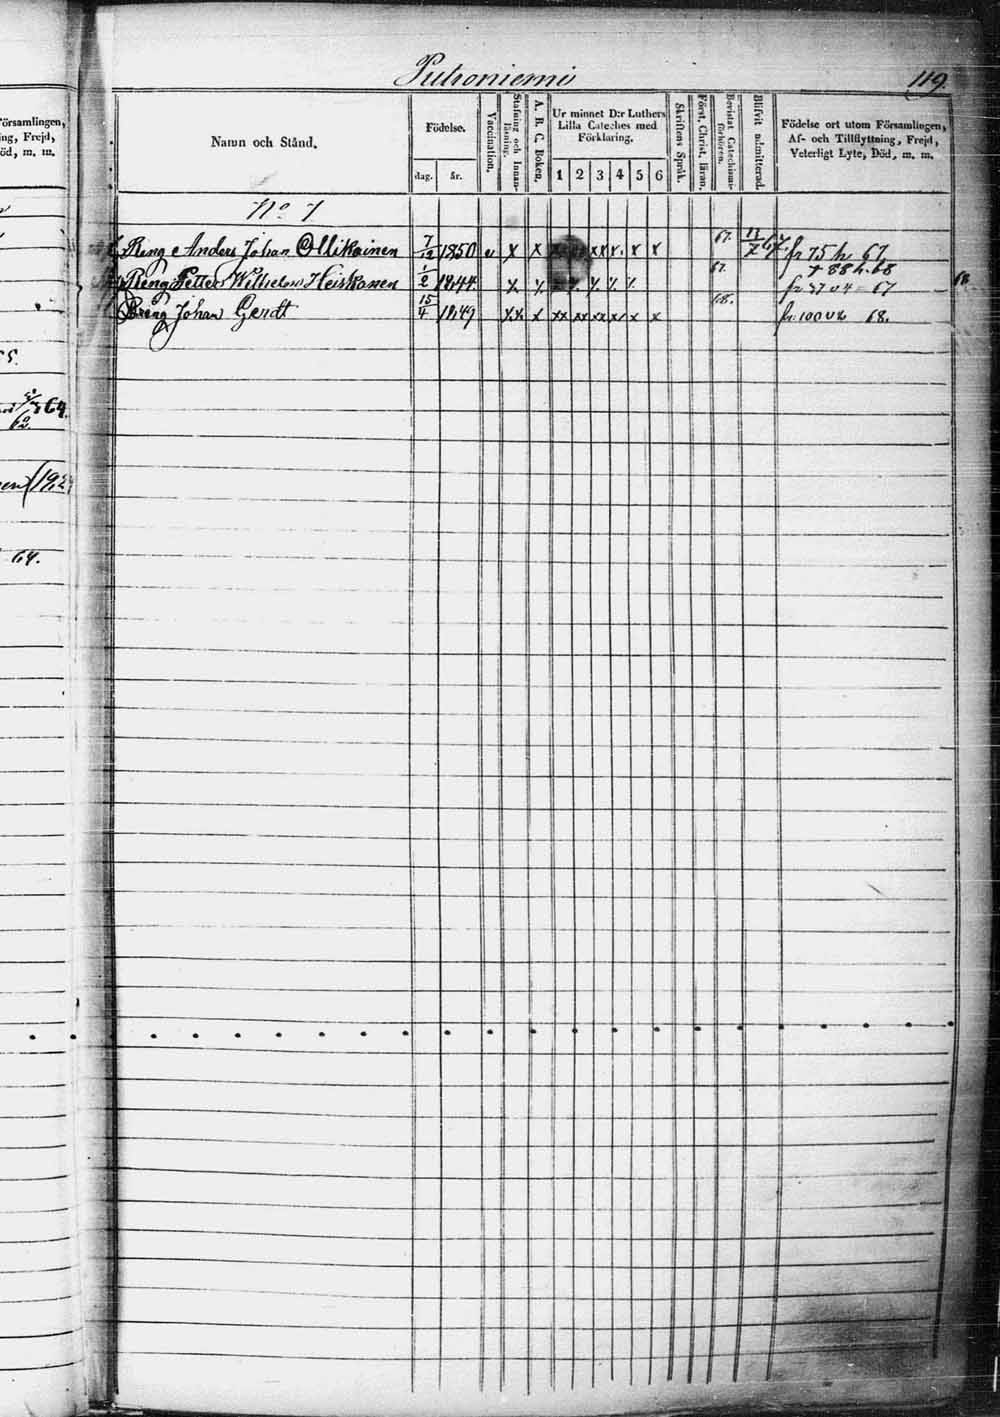 Putroniemi 119.
Församlingen,
ing, Frejd,
öd, m. m.
Namn och Stånd.
Födelse.
dag. år.
Vaccination.
Stafning och Innan-
läsning.
A. B. C. Boken.
Ur minnet D:r Luthers
Lilla Cateches med
Förklaring.
1 2 3 4 5 6
Skriftens Språk.
Först. Christ. läran.
Bevistat Catechismi-
förhören.
Blifvit admitterad.
Födelse ort utom Församlingen,
Af- och Tillflyttning, Frejd,
Veterligt Lyte, Död, m. m.
No 7
Reng Anders Johan Ollikainen 7/12 1850 v x x xx x x x 67. 67. fr 75 h 67
+ 88 h. 68
Reng Petter Wilhelm Heiskanen 1/2 1844 67. 67 68
Dreng Johan Gerdt 15/4 1849 xx x xx xx xx x x x 68. fr 100 68.
64.
62.
64.